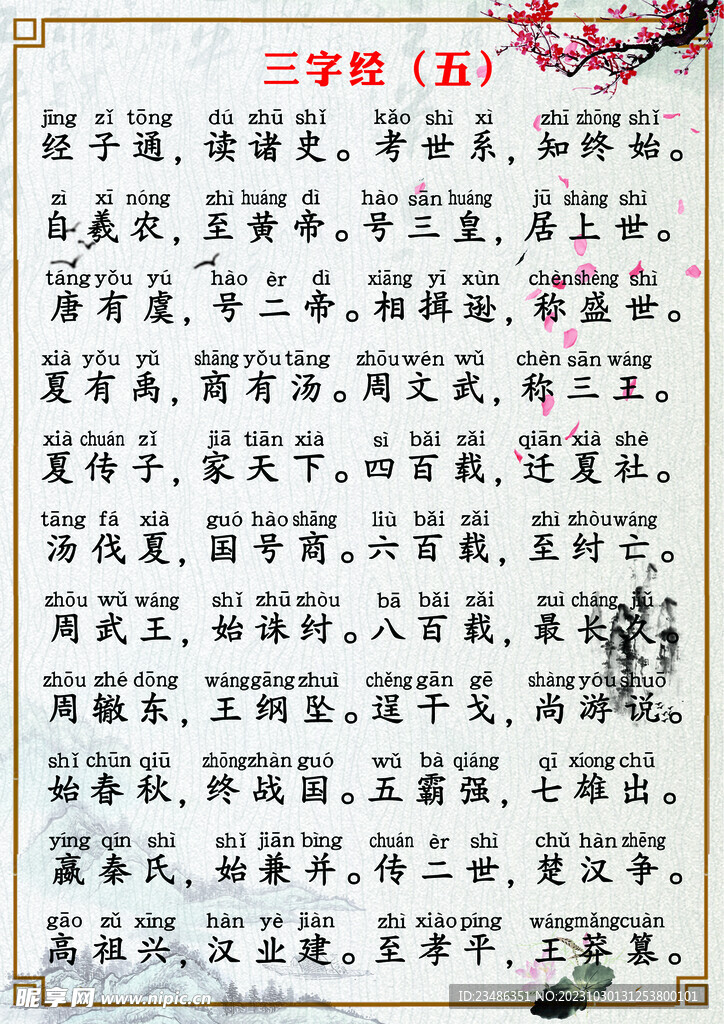 三字经（五）
jīng zǐ tōng dú zhū shǐ kǎo shì xì zhī zhōng shǐ
经子通，读诸史。考世系，知终始。
zì xī nóng zhì huáng dì hào sān huáng jū shàng shì
自羲农，至黄帝。号三皇，居上世。
táng yǒu yú hào èr dì xiāng yī xùn chèn shèng shì
唐有虞，号二帝。相揖逊，称盛世。
xià yǒu yǔ shāng yǒu tāng zhōu wén wǔ chèn sān wáng
夏有禹，商有汤。周文武，称三王。
xià chuán zǐ jiā tiān xià sì bǎi zǎi qiān xià shè
夏传子，家天下。四百载，迁夏社。
tāng fá xià guó hào shāng liù bǎi zǎi zhì zhòu wáng
汤伐夏，国号商。六百载，至纣亡。
zhōu wǔ wáng shǐ zhū zhòu bā bǎi zǎi zuì cháng jiǔ
周武王，始诛纣。八百载，最长久。
zhōu zhé dōng wáng gāng zhuì chěng gān gē shàng yóu shuō
周辙东，王纲坠。逞干戈，尚游说。
shǐ chūn qiū zhōng zhàn guó wǔ bà qiáng qī xíong chū
始春秋，终战国。五霸强，七雄出。
yíng qín shì shǐ jiān bìng chuán èr shì chǔ hàn zhēng
嬴秦氏，始兼并。传二世，楚汉争。
gāo zǔ xīng hàn yè jiàn zhì xiào píng wáng mǎng cuàn
高祖兴，汉业建。至孝平，王莽篡。
昵享网 www.nipic.cn
ID:23486351 NO:20231030131253800101